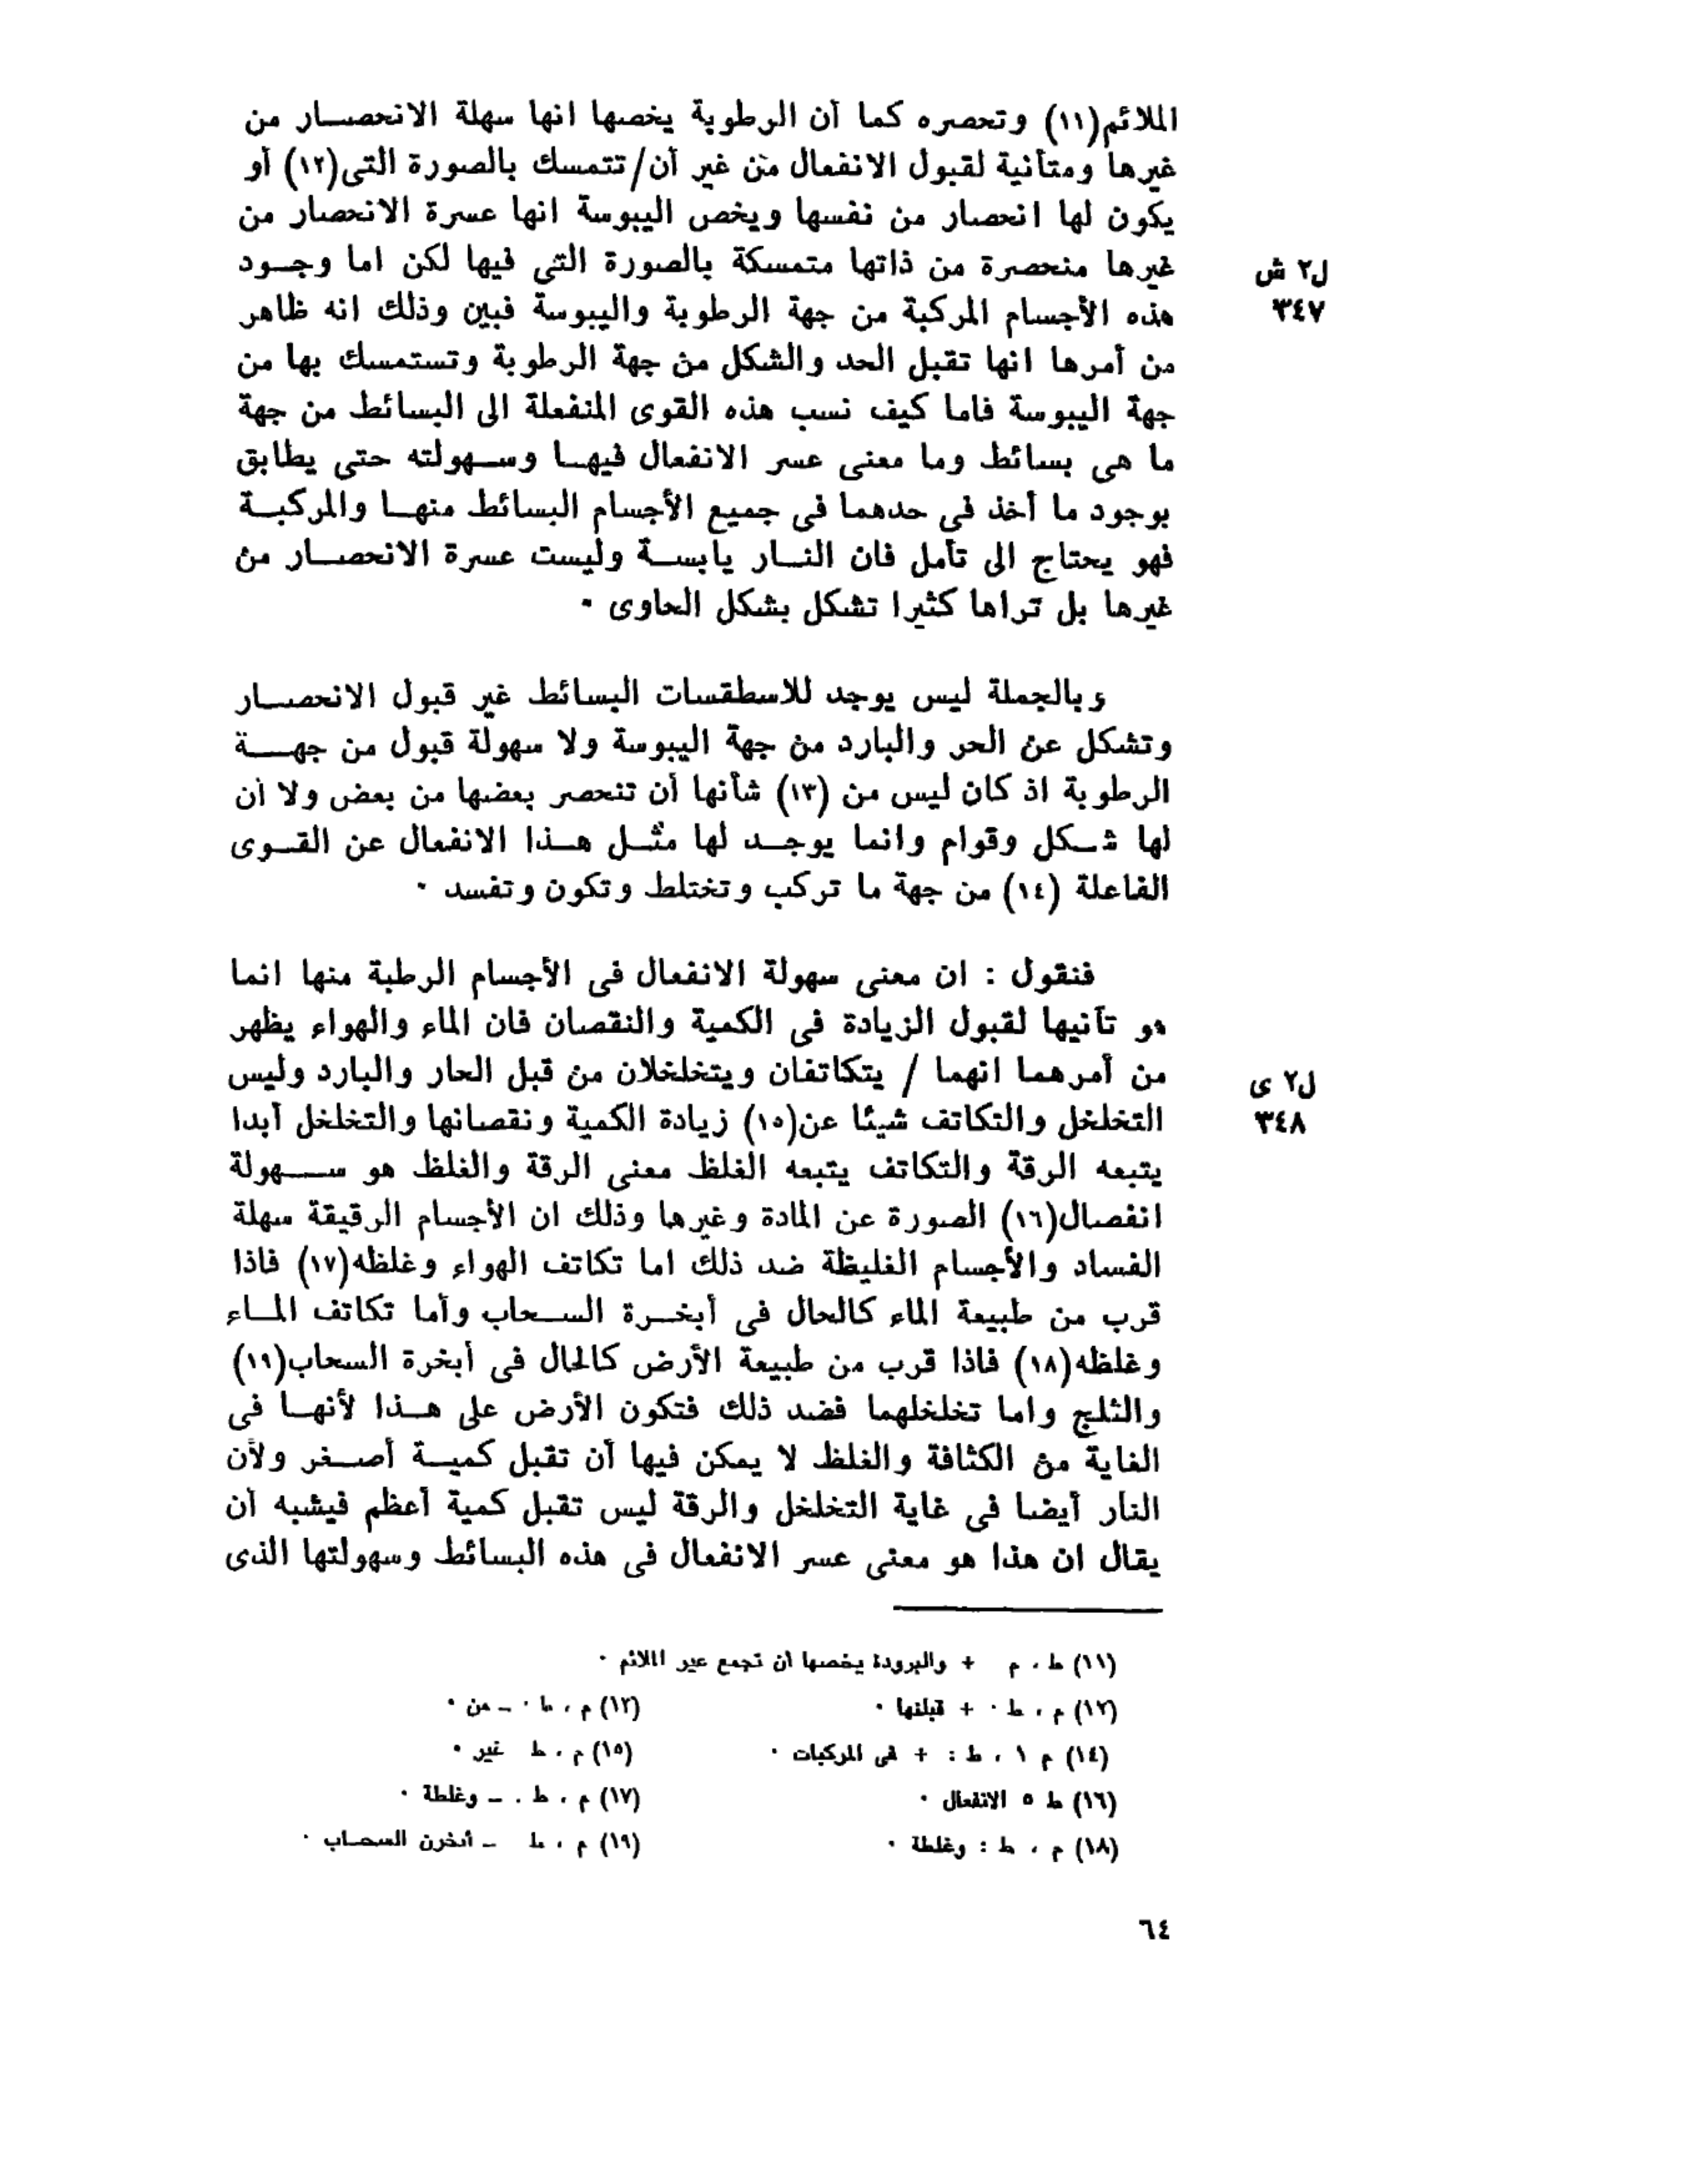 الملائم(١١) وتحصره كما أن الرطوبة يخصها انها سهلة الانحصار من
غيرها ومتأنية لقبول الانفعال من غير أن/تتمسك بالصورة التى(١٢) أو
يكون لها انحصار من نفسها ويخص اليبوسة انها عسرة الانحصار من
غيرها منحصرة من ذاتها متمسكة بالصورة التى فيها لكن اما وجود
ل٢ ش
هذه الأجسام المركبة من جهة الرطوبة واليبوسة فبين وذلك انه ظاهر
٣٤٧
من أمرها انها تقبل الحد والشكل من جهة الرطوبة وتستمسك بها من
جهة اليبوسة فاما كيف نسب هذه القوى المنفعلة الى البسائط من جهة
ما هى بسائط وما معنى عسر الانفعال فيها وسهولته حتى يطابق
بوجود ما أخذ فى حدهما فى جميع الأجسام البسائط منها والمركبة
فهو يحتاج الى تأمل فان النار يابسة وليست عسرة الانحصار من
غيرها بل تراها كثيرا تشكل بشكل الحاوى ٠
وبالجملة ليس يوجد للاسطقسات البسائط غير قبول الانحصار
وتشكل عن الحر والبارد من جهة اليبوسة ولا سهولة قبول من جهة
الرطوبة اذ كان ليس من (١٣) شأنها أن تنحصر بعضها من بعض ولا أن
لها شكل وقوام وانما يوجد لها مثل هذا الانفعال عن القوى
الفاعلة (١٤) من جهة ما تركب وتختلط وتكون وتفسد ٠
فنقول : ان معنى سهولة الانفعال فى الأجسام الرطبة منها انما
هو تأنيها لقبول الزيادة فى الكمية والنقصان فان الماء والهواء يظهر
من أمرهما انهما / يتكاتفان ويتخلخلان من قبل الحار والبارد وليس
ل٢ ى
التخلخل والتكاتف شيئا عن(١٥) زيادة الكمية ونقصانها والتخلخل أبدا
٣٤٨
يتبعه الرقة والتكاتف يتبعه الغلظ معنى الرقة والغلظ هو سهولة
انفصال(١٦) الصورة عن المادة وغيرها وذلك ان الأجسام الرقيقة سهلة
الفساد والأجسام الغليظة ضد ذلك اما تكاتف الهواء وغلظه(١٧) فاذا
قرب من طبيعة الماء كالحال فى أبخرة السحاب وأما تكاتف الماء
وغلظه(١٨) فاذا قرب من طبيعة الأرض كالحال فى أبخرة السحاب(١٩)
والثلج واما تخلخلهما فضد ذلك فتكون الأرض على هذا لأنها فى
الغاية من الكثافة والغلظ لا يمكن فيها أن تقبل كمية أصغر ولأن
النار أيضا فى غاية التخلخل والرقة ليس تقبل كمية أعظم فيشبه أن
يقال ان هذا هو معنى عسر الانفعال فى هذه البسائط وسهولتها الذى
(١١) ط ، م + والبرودة يخصها أن تجمع غير الملائم ٠
(١٢) م ، ط ٠ + قبلتها ٠
(١٣) م ، ط ٠ ـ من ٠
(١٤) م ١ ، ط : + فى المركبات ٠
(١٥) م ، ط غير ٠
(١٦) ط ٥ الانفعال ٠
(١٧) م ، ط . ـ وغلطة ٠
(١٨) م ، ط : وغلطة ٠
(١٩) م ، ط ـ أبخرن السحاب ٠
٦٤